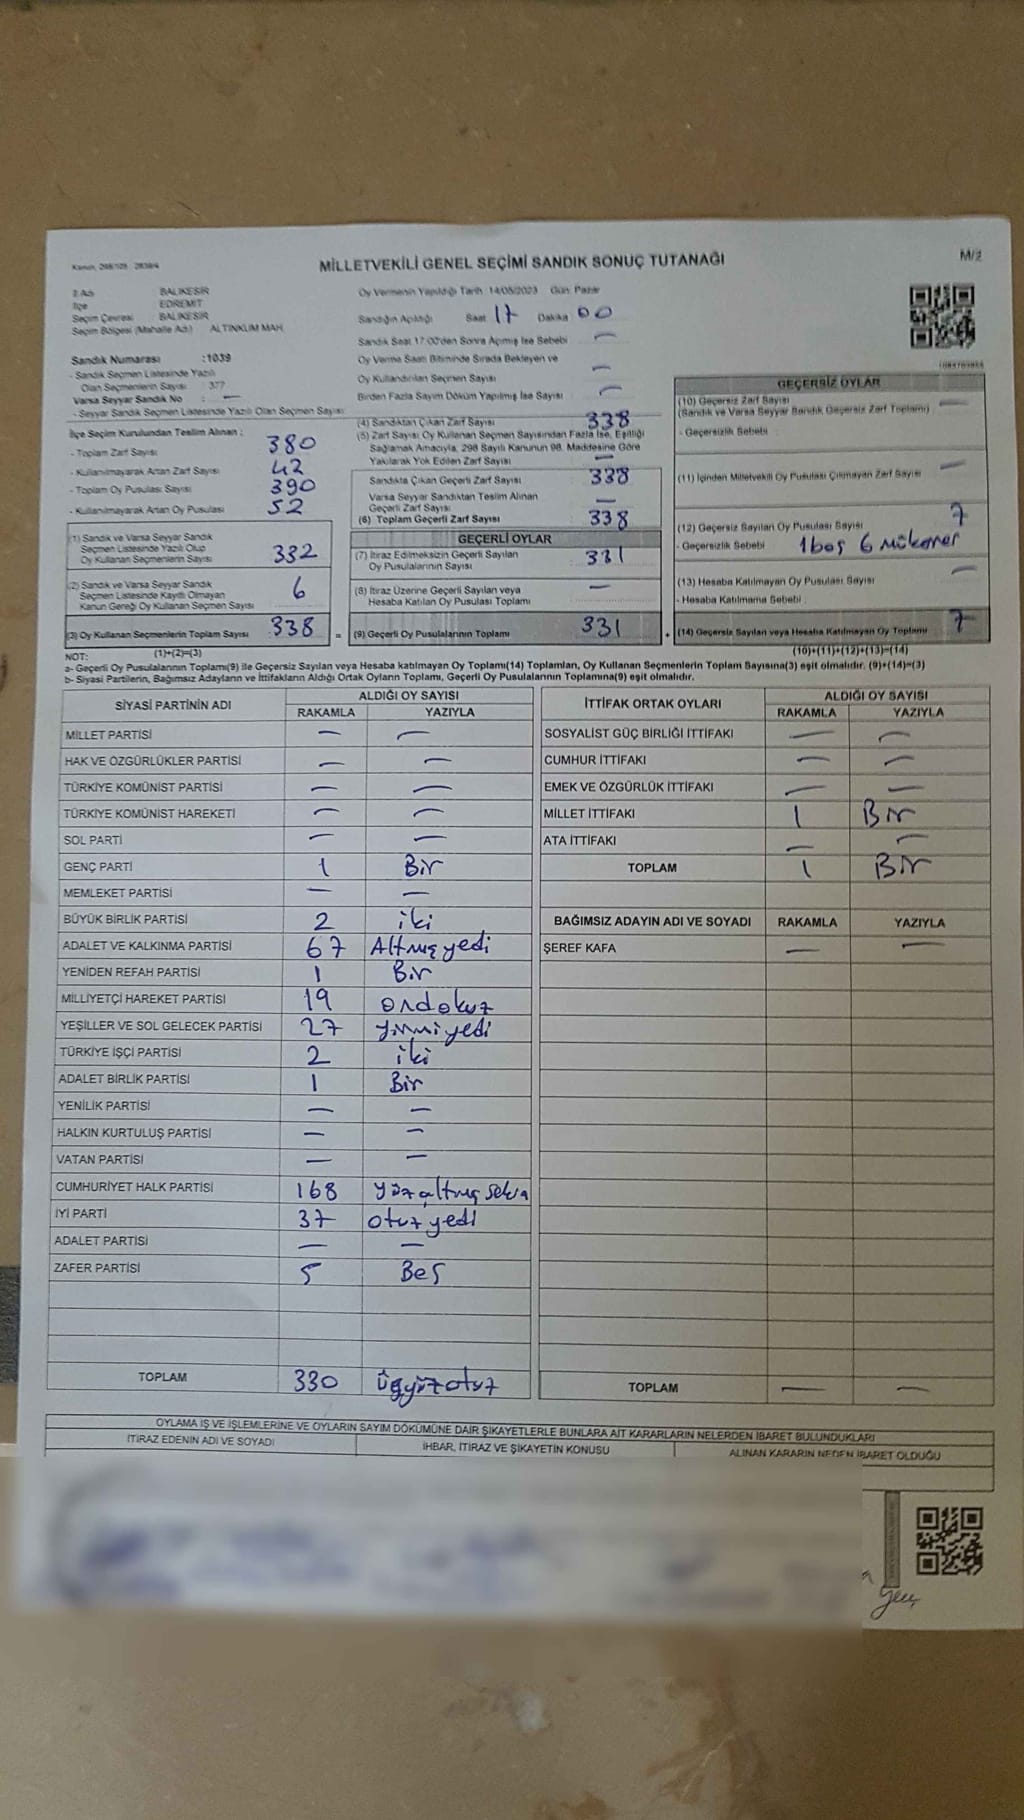 MİLLETVEKİLİ GENEL SEÇİMİ SANDIK SONUÇ TUTANAĞI
M/2
İl Adı BALIKESİR
İlçe EDREMİT
Seçim Çevresi BALIKESİR
Seçim Bölgesi (Mahalle Adı) ALTINKUM MAH.
Sandık Numarası :1039
- Sandık Seçmen Listesinde Yazılı
Olan Seçmenlerin Sayısı 377
Varsa Seyyar Sandık No : —
- Seyyar Sandık Seçmen Listesinde Yazılı Olan Seçmen Sayısı:
Oy Vermenin Yapıldığı Tarih :14/05/2023 Gün: Pazar
Sandığın Açıldığı Saat 17 Dakika 00
Sandık Saat 17.00'den Sonra Açılmış İse Sebebi —
Oy Verme Saati Bitiminde Sırada Bekleyen ve
Oy Kullandırılan Seçmen Sayısı —
Birden Fazla Sayım Döküm Yapılmış İse Sayısı —
İlçe Seçim Kurulundan Teslim Alınan :
- Toplam Zarf Sayısı 380
- Kullanılmayarak Artan Zarf Sayısı 42
- Toplam Oy Pusulası Sayısı 390
- Kullanılmayarak Artan Oy Pusulası 52
(1) Sandık ve Varsa Seyyar Sandık
Seçmen Listesinde Yazılı Olup
Oy Kullanan Seçmenlerin Sayısı 332
(2) Sandık ve Varsa Seyyar Sandık
Seçmen Listesinde Kayıtlı Olmayan
Kanun Gereği Oy Kullanan Seçmen Sayısı 6
(3) Oy Kullanan Seçmenlerin Toplam Sayısı :338 =
(4) Sandıktan Çıkan Zarf Sayısı 338
(5) Zarf Sayısı Oy Kullanan Seçmen Sayısından Fazla İse, Eşitliği
Sağlamak Amacıyla, 298 Sayılı Kanunun 98. Maddesine Göre
Yakılarak Yok Edilen Zarf Sayısı —
Sandıkta Çıkan Geçerli Zarf Sayısı 338
Varsa Seyyar Sandıktan Teslim Alınan
Geçerli Zarf Sayısı —
(6) Toplam Geçerli Zarf Sayısı 338
GEÇERLİ OYLAR
(7) İtiraz Edilmeksizin Geçerli Sayılan
Oy Pusulalarının Sayısı 331
(8) İtiraz Üzerine Geçerli Sayılan veya
Hesaba Katılan Oy Pusulası Toplamı —
(9) Geçerli Oy Pusulalarının Toplamı 331 +
GEÇERSİZ OYLAR
(10) Geçersiz Zarf Sayısı —
(Sandık ve Varsa Seyyar Sandık Geçersiz Zarf Toplamı)
- Geçersizlik Sebebi :
(11) İçinden Milletvekili Oy Pusulası Çıkmayan Zarf Sayısı —
(12) Geçersiz Sayılan Oy Pusulası Sayısı 7
- Geçersizlik Sebebi 1 boş 6 Mükerrer
(13) Hesaba Katılmayan Oy Pusulası Sayısı —
- Hesaba Katılmama Sebebi :
(14) Geçersiz Sayılan veya Hesaba Katılmayan Oy Toplamı 7
NOT: (1)+(2)=(3)
(10)+(11)+(12)+(13)=(14)
a- Geçerli Oy Pusulalarının Toplamı(9) ile Geçersiz Sayılan veya Hesaba katılmayan Oy Toplamı(14) Toplamları, Oy Kullanan Seçmenlerin Toplam Sayısına(3) eşit olmalıdır. (9)+(14)=(3)
b- Siyasi Partilerin, Bağımsız Adayların ve İttifakların Aldığı Ortak Oyların Toplamı, Geçerli Oy Pusulalarının Toplamına(9) eşit olmalıdır.
SİYASİ PARTİNİN ADI ALDIĞI OY SAYISI
RAKAMLA YAZIYLA
MİLLET PARTİSİ — —
HAK VE ÖZGÜRLÜKLER PARTİSİ — —
TÜRKİYE KOMÜNİST PARTİSİ — —
TÜRKİYE KOMÜNİST HAREKETİ — —
SOL PARTİ — —
GENÇ PARTİ 1 Bir
MEMLEKET PARTİSİ — —
BÜYÜK BİRLİK PARTİSİ 2 iki
ADALET VE KALKINMA PARTİSİ 67 Altmış yedi
YENİDEN REFAH PARTİSİ 1 Bir
MİLLİYETÇİ HAREKET PARTİSİ 19 ondokuz
YEŞİLLER VE SOL GELECEK PARTİSİ 27 yirmiyedi
TÜRKİYE İŞÇİ PARTİSİ 2 iki
ADALET BİRLİK PARTİSİ 1 Bir
YENİLİK PARTİSİ — —
HALKIN KURTULUŞ PARTİSİ — —
VATAN PARTİSİ — —
CUMHURİYET HALK PARTİSİ 168 yüz altmış sekiz
İYİ PARTİ 37 otuz yedi
ADALET PARTİSİ — —
ZAFER PARTİSİ 5 Beş
TOPLAM 330 üçyüz otuz
İTTİFAK ORTAK OYLARI ALDIĞI OY SAYISI
RAKAMLA YAZIYLA
SOSYALİST GÜÇ BİRLİĞİ İTTİFAKI — —
CUMHUR İTTİFAKI — —
EMEK VE ÖZGÜRLÜK İTTİFAKI — —
MİLLET İTTİFAKI 1 Bir
ATA İTTİFAKI — —
TOPLAM 1 Bir
BAĞIMSIZ ADAYIN ADI VE SOYADI RAKAMLA YAZIYLA
ŞEREF KAFA — —
TOPLAM — —
OYLAMA İŞ VE İŞLEMLERİNE VE OYLARIN SAYIM DÖKÜMÜNE DAİR ŞİKAYETLERLE BUNLARA AİT KARARLARIN NELERDEN İBARET BULUNDUKLARI
İTİRAZ EDENİN ADI VE SOYADI İHBAR, İTİRAZ VE ŞİKAYETİN KONUSU ALINAN KARARIN NEDEN İBARET OLDUĞU